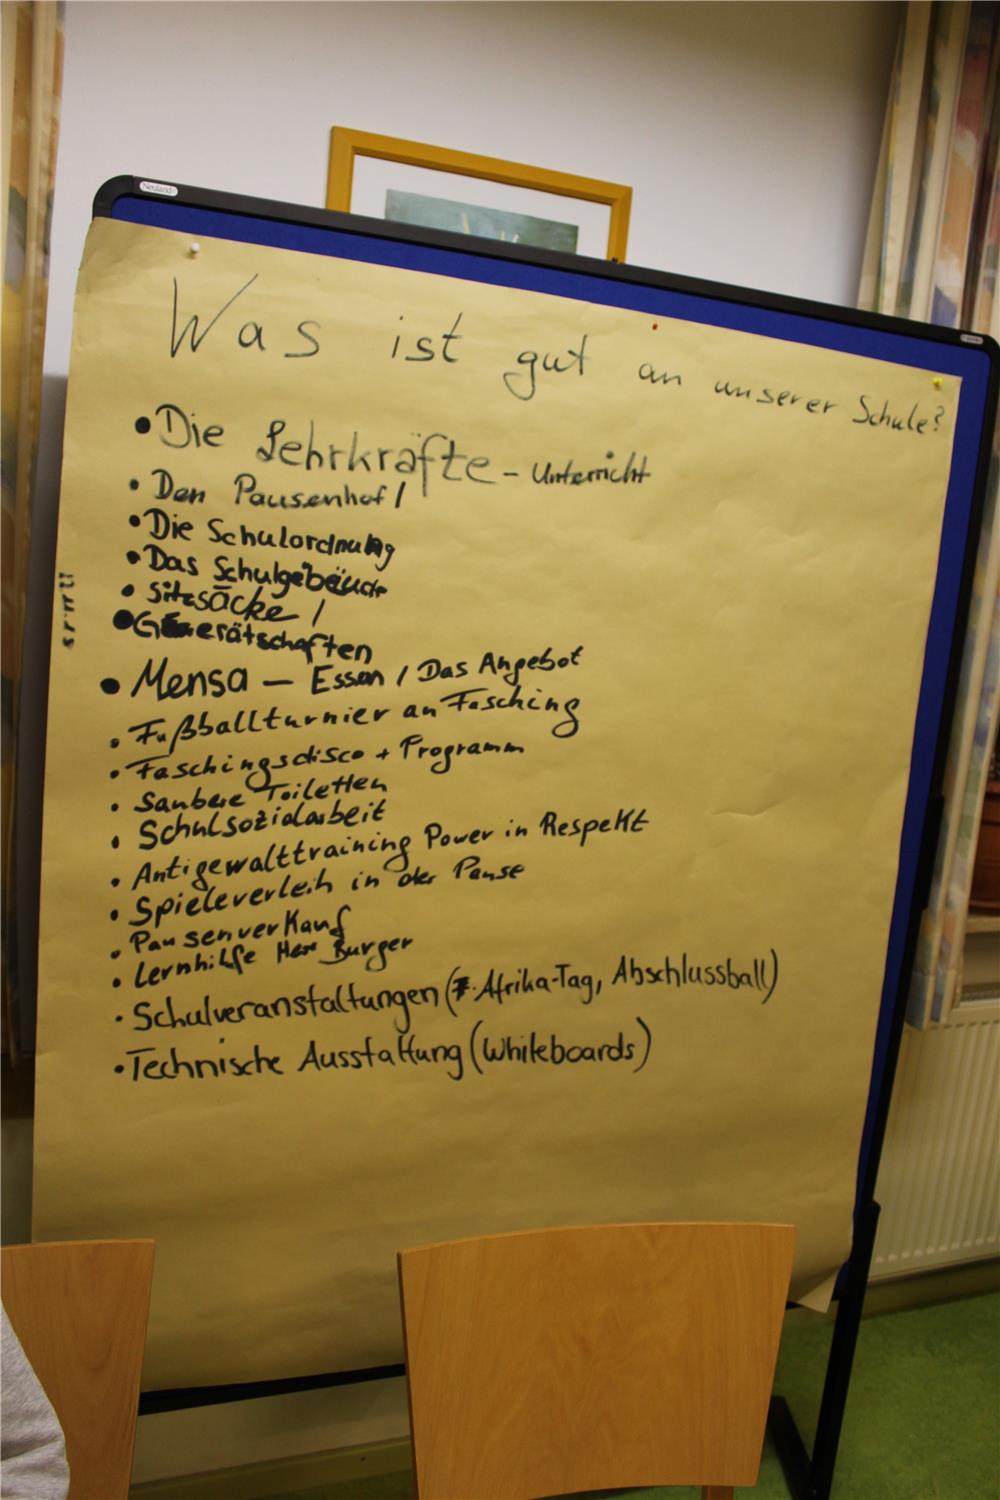 Neuland
Was ist gut an unserer Schule?
• Die Lehrkräfte - Unterricht
• Den Pausenhof /
• Die Schulordnung
• Das Schulgebäude
• Sitzsäcke /
• Gerätschaften
• Mensa — Essen / Das Angebot
• Fußballturnier an Fasching
• Faschingsdisco + Programm
• Saubere Toiletten
• Schulsozialarbeit
• Antigewalttraining Power in Respekt
• Spieleverleih in der Pause
• Pausenverkauf
• Lernhilfe Herr Burger
• Schulveranstaltungen (Afrika-Tag, Abschlussball)
• Technische Ausstattung (Whiteboards)